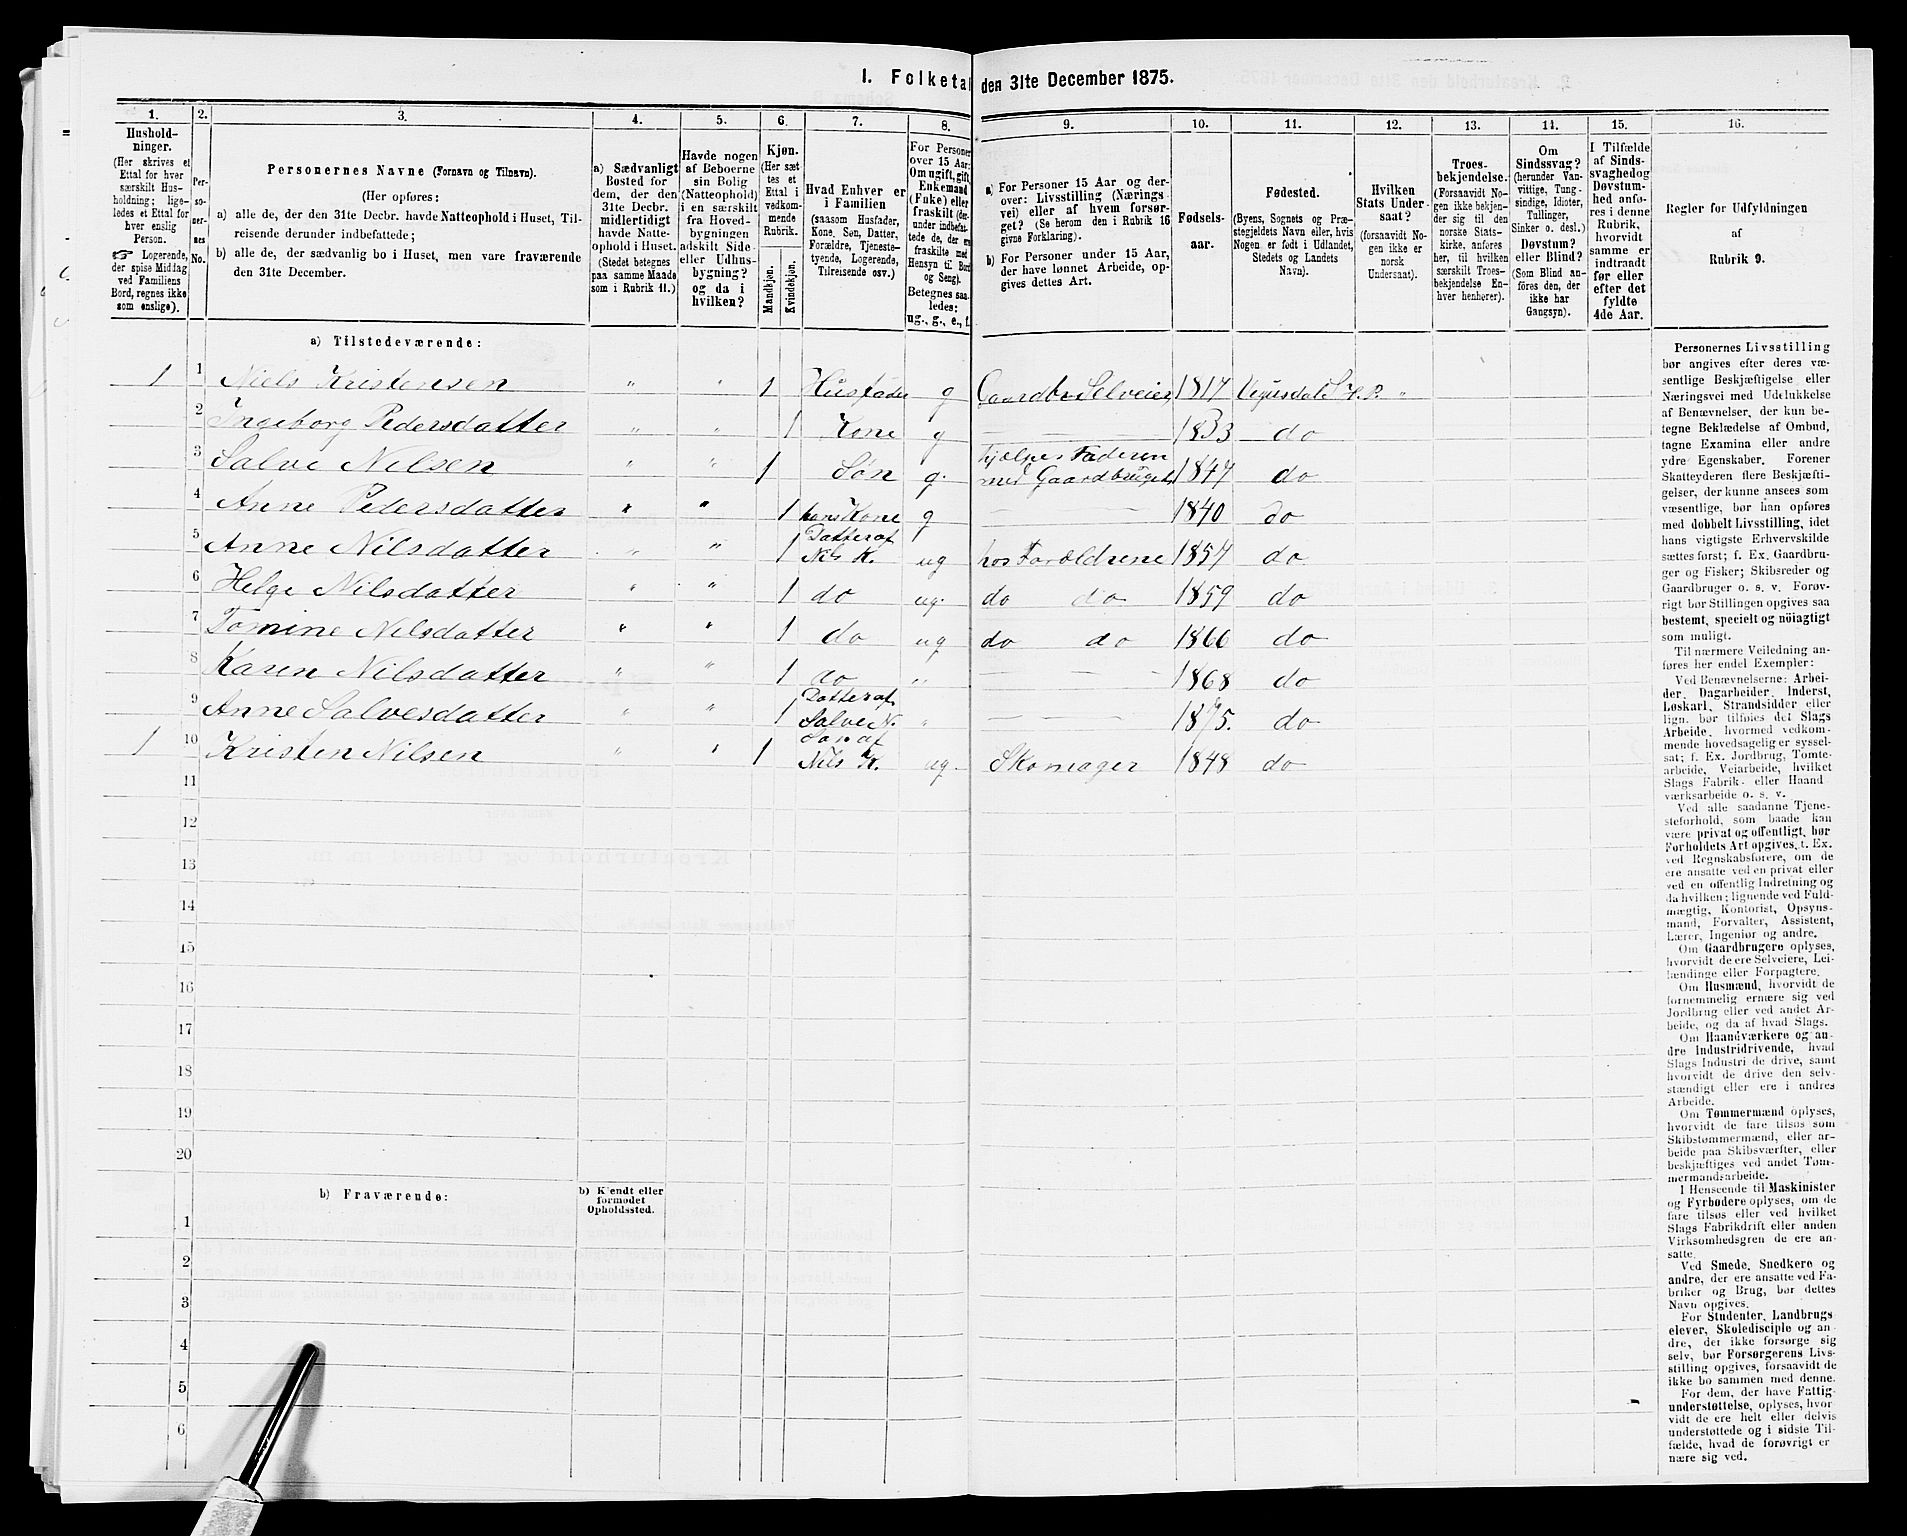 I. Folketal den 31te December 1875.
1. 2. 3. 4. 5. 6. 7. 8. 9. 10. 11. 12. 13. 14. 15. 16.
Hushold-
ninger.
(Her skrives et
Ettal for hver
særskilt Hus-
holdning; lige-
ledes et Ettal for
hver enslig
Person.
☞ Logerende,
der spise Middag
ved Familiens
Bord, regnes ikke
som enslige).
Per-
so-
ner-
nes
No.
Personernes Navne (Fornavn og Tilnavn).
(Her opføres:
a) alle de, der den 31te Decbr. havde Natteophold i Huset, Til-
reisende derunder indbefattede;
b) alle de, der sædvanlig bo i Huset, men vare fraværende
den 31te December.
a) Sædvanligt
Bosted for
dem, der den
31te Decbr.
midlertidigt
havde Natte-
ophold i Huset.
(Stedet betegnes
paa samme Maade
som i Rubrik 11.)
Havde nogen
af Beboerne
sin Bolig
(Natteophold)
i en særskilt
fra Hoved-
bygningen
adskilt Side-
eller Udhus-
bygning?
og da i
hvilken?
Kjøn.
(Her sæt-
tes et
Ettal i
vedkom-
mende
Rubrik.
Mandkjøn.
Kvindekjøn.
Hvad Enhver er
i Familien
(saasom Husfader,
Kone, Søn, Datter,
Forældre, Tjeneste-
tyende, Logerende,
Tilreisende osv.)
For Personer
over 15 Aar:
Om ugift, gift,
Enkemand
(Enke) eller
fraskilt (der-
under indbefat-
tede de, der ere
fraskilte med
Hensyn til Bord
og Seng).
Betegnes saa-
ledes:
ug., g., e., f.
a) For Personer 15 Aar og der-
over: Livsstilling (Nærings-
vei) eller af hvem forsør-
get? (Se herom den i Rubrik 16
givne Forklaring).
b) For Personer under 15 Aar,
der have lønnet Arbeide, op-
gives dettes Art.
Fødsels-
aar.
Fødested.
(Byens, Sognets og Præ-
stegjeldets Navn eller, hvis
Nogen er født i Udlandet,
Stedets og Landets
Navn).
Hvilken
Stats Under-
saat?
(forsaavidt No-
gen ikke er
norsk
Undersaat).
Troes-
bekjendelse.
(Forsaavidt No-
gen ikke bekjen-
der sig til den
norske Stats-
kirke, anføres
her, til hvilken
særskilt Troes-
bekjendelse En-
hver henhører).
Om
Sindssvag?
(herunder Van-
vittige, Tung-
sindige, Idioter,
Tullinger,
Sinker o. desl.)
Døvstum?
eller Blind?
(Som Blind an-
føres den, der
ikke har
Gangsyn).
I Tilfælde
af Sinds-
svaghed og
Døvstum-
hed anfø-
res i denne
Rubrik,
hvorvidt
samme er
indtraadt
før eller
efter det
fyldte
4de Aar.
Regler for Udfyldningen
af
Rubrik 9.
a) Tilstedeværende:
1 1 Niels Kristensen " " 1 Husfader g Gaardbr Selveier 1817 Vegusdal S. H. P. "
2 Ingeborg Pedersdatter " " 1 Kone g — 1833 do
3 Salve Nilsen " " 1 Søn g. hjælper Faderen med Gaardbruget 1847 do
4 Anne Pedersdatter " " 1 hans Kone g — 1840 do
5 Anne Nilsdatter " " 1 Datter af Nils K. ug hos Forældrene 1857 do
6 Helge Nilsdatter " " 1 do ug. do do 1859 do
7 Tomine Nilsdatter " " 1 do ug do do 1860 do
8 Karen Nilsdatter " " 1 do " — 1868 do
9 Anne Salvesdatter " " 1 Datter af Salve N. " — 1875. do
1 10 Kristen Nilsen " " 1 Søn af Nils K. ug. Skomager 1848 do
11
12
13
14
15
16
17
18
19
20
b) Fraværende:
b) Kjendt eller
formodet
Opholdssted.
1
2
3
4
5
6
Personernes Livsstilling
bør angives efter deres væ-
sentlige Beskjæftigelse eller
Næringsvei med Udelukkelse
af Benævnelser, der kun be-
tegne Beklædelse af Ombud,
tagne Examina eller andre
ydre Egenskaber. Forener
Skatteyderen flere Beskjæfti-
gelser, der kunne ansees som
væsentlige, bør han opføres
med dobbelt Livsstilling, idet
hans vigtigste Erhvervskilde
sættes først; f. Ex. Gaardbru-
ger og Fisker; Skibsreder og
Gaardbruger o. s. v. Forøv-
rigt bør Stillingen opgives saa
bestemt, specielt og nöiagtigt
som muligt.
Til nærmere Veiledning an-
føres her endel Exempler:
Ved Benævnelserne: Arbei-
der, Dagarbeider, Inderst,
Løskarl, Strandsidder eller
lign. bør tilføies det Slags
Arbeide, hvormed vedkom-
mende hovedsagelig er syssel-
sat; f. Ex. Jordbrug, Tomte-
arbeide, Veiarbeide, hvilket
Slags Fabrik- eller Haand-
værksarbeide o. s. v.
Ved alle saadanne Tjene-
steforhold, som baade kan
være privat og offentligt, bør
Forholdets Art opgives, t. Ex.
ved Regnskabsførere, om de
ere ansatte ved en privat eller
ved en offentlig Indretning og
da hvilken; lignende ved Fuld-
mægtig, Kontorist, Opsyns-
mand, Forvalter, Assistent,
Lærer, Ingeniør og andre.
Om Gaardbrugere oplyses,
hvorvidt de ere Selveiere, Lei-
lændinge eller Forpagtere.
Om Husmænd, hvorvidt de
fornemmelig ernære sig ved
Jordbrug eller ved andet Ar-
beide, og da af hvad Slags.
Om Haandværkere og an-
dre Industridrivende, hvad
Slags Industri de drive, samt
hvorvidt de drive den selv-
stændigt eller ere i andres
Arbeide.
Om Tømmermænd oplyses,
hvorvidt de fare tilsøs som
Skibstømmermænd, eller ar-
beide paa Skibsværfter, eller
beskjæftiges ved andet Tøm-
mermandsarbeide.
I Henseende til Maskinister
og Fyrbødere oplyses, om de
fare tilsøs eller ved hvilket
Slags Fabrikdrift eller anden
Virksomhedsgren de ere an-
satte.
Ved Smede, Snedkere og
andre, der ere ansatte ved Fa-
briker og Brug, bør dettes
Navn opgives.
For Studenter, Landbrugs-
elever, Skoledisciple og an-
dre, der ikke forsørge sig
selv, bør Forsørgerens Livs-
stilling opgives, forsaavidt de
ikke bo sammen med denne.
For dem, der have Fattig-
understøttelse, oplyses, hvor-
vidt de ere helt eller delvis
understøttede og i sidste Til-
fælde, hvad de forøvrigt er-
nære sig ved.